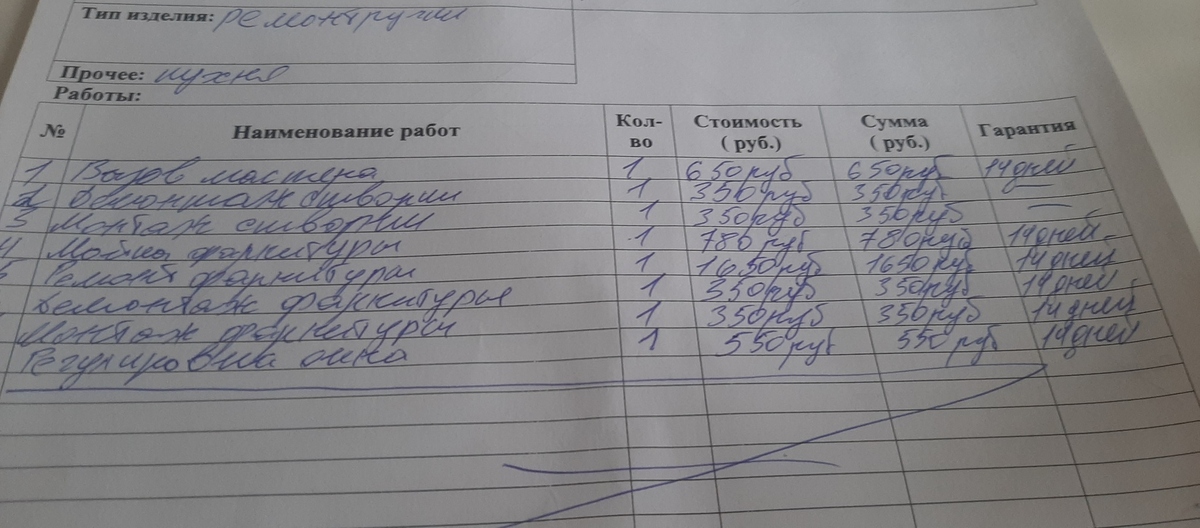 Тип изделия: ремонт ручки
Прочее: кухня
Работы:
№ Наименование работ Кол-во Стоимость ( руб.) Сумма ( руб.) Гарантия
1 Вызов мастера 1 650 руб 650 руб 14 дней
2 Демонтаж створки 1 350 руб 350 руб —
3 Монтаж створки 1 350 руб 350 руб —
4 Мойка фаркитуры 1 780 руб 780 руб 14 дней
5 Ремонт фаркитуры 1 1650 руб 1650 руб 14 дней
Демонтаж фаркитуры 1 350 руб 350 руб 14 дней
Монтаж фаркитуры 1 350 руб 350 руб 14 дней
Регулировка окна 1 550 руб 550 руб 14 дней